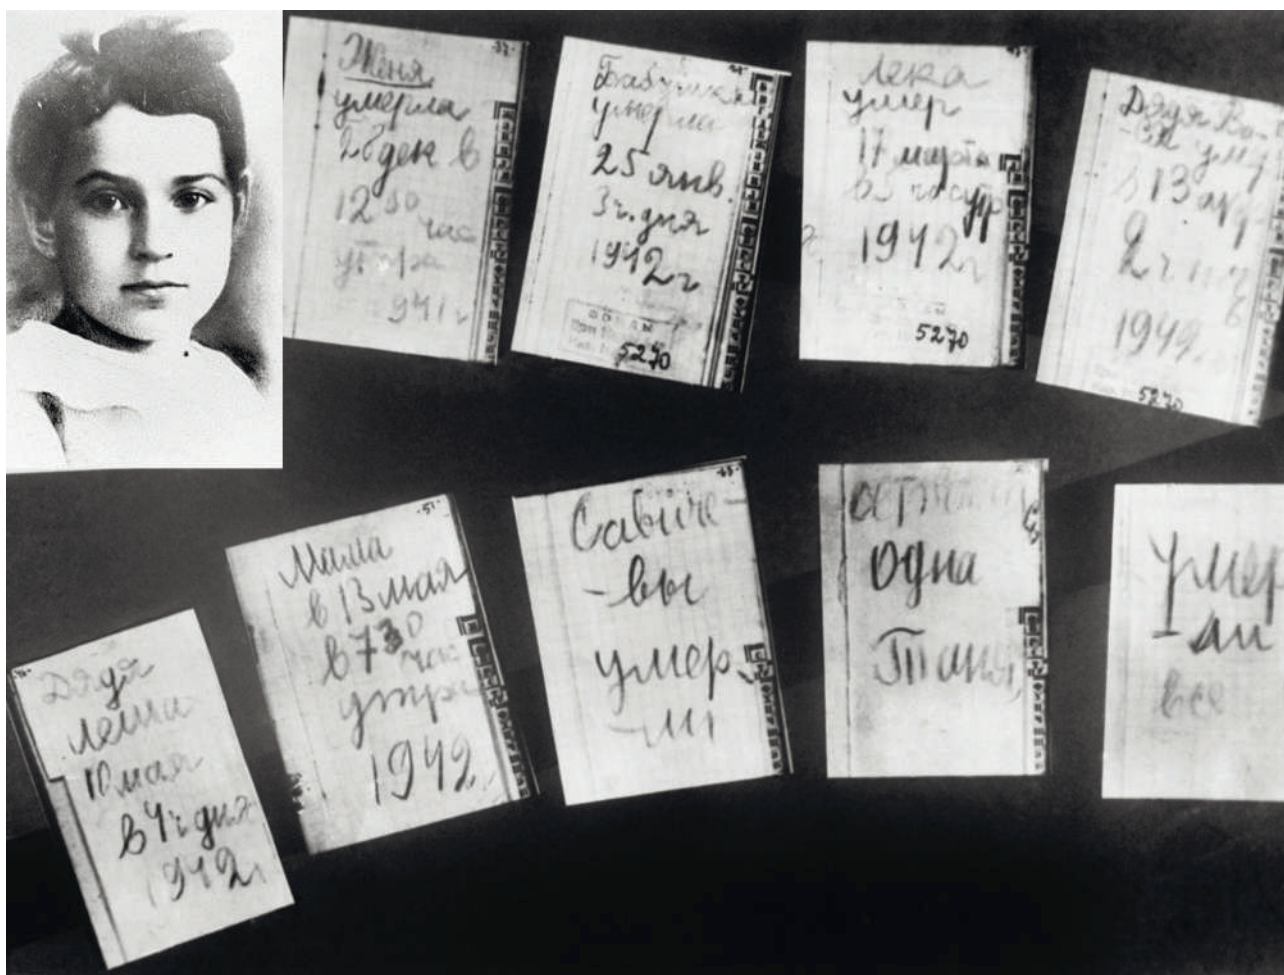 Женя
умерла
28 дек в
12 30
час
утра
941 г
Бабушка
умерла
25 янв.
3 ч. дня
1942 г
5270
Лека
умер
17 марта
в 5 час утр
1942 г
5270
Дядя Ва-
-ся умер
в 13 апр
2 ч ноч
1942
5270
Дядя
Леша
10 мая
в 4 ч дня
1942 г
-51-
Мама
в 13 мая
в 7 30
час
утра
1942
Савиче-
-вы
умер
-ли
одна
Таня
Умер
-ли
все